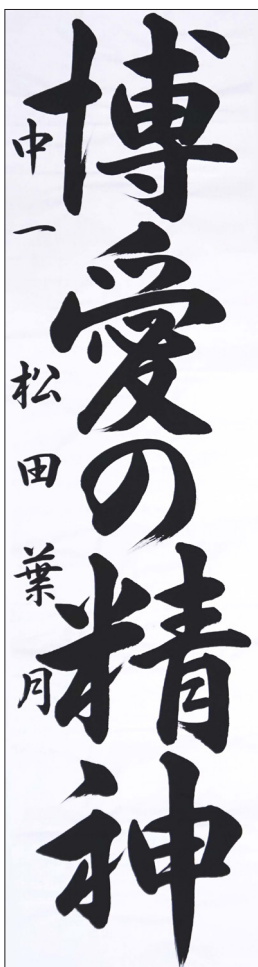 博愛の精神
中一 松田葉月